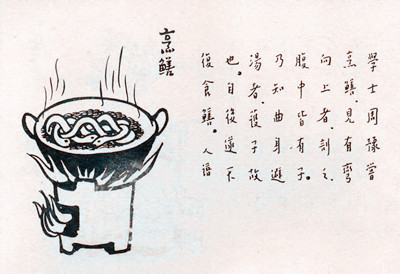 學士周豫嘗
烹鱔。見有彎
向上者。剖之
腹中皆有子。
乃知曲身避
湯者。護子故
也。自後遂不
復食鱔。人譜
烹鱔